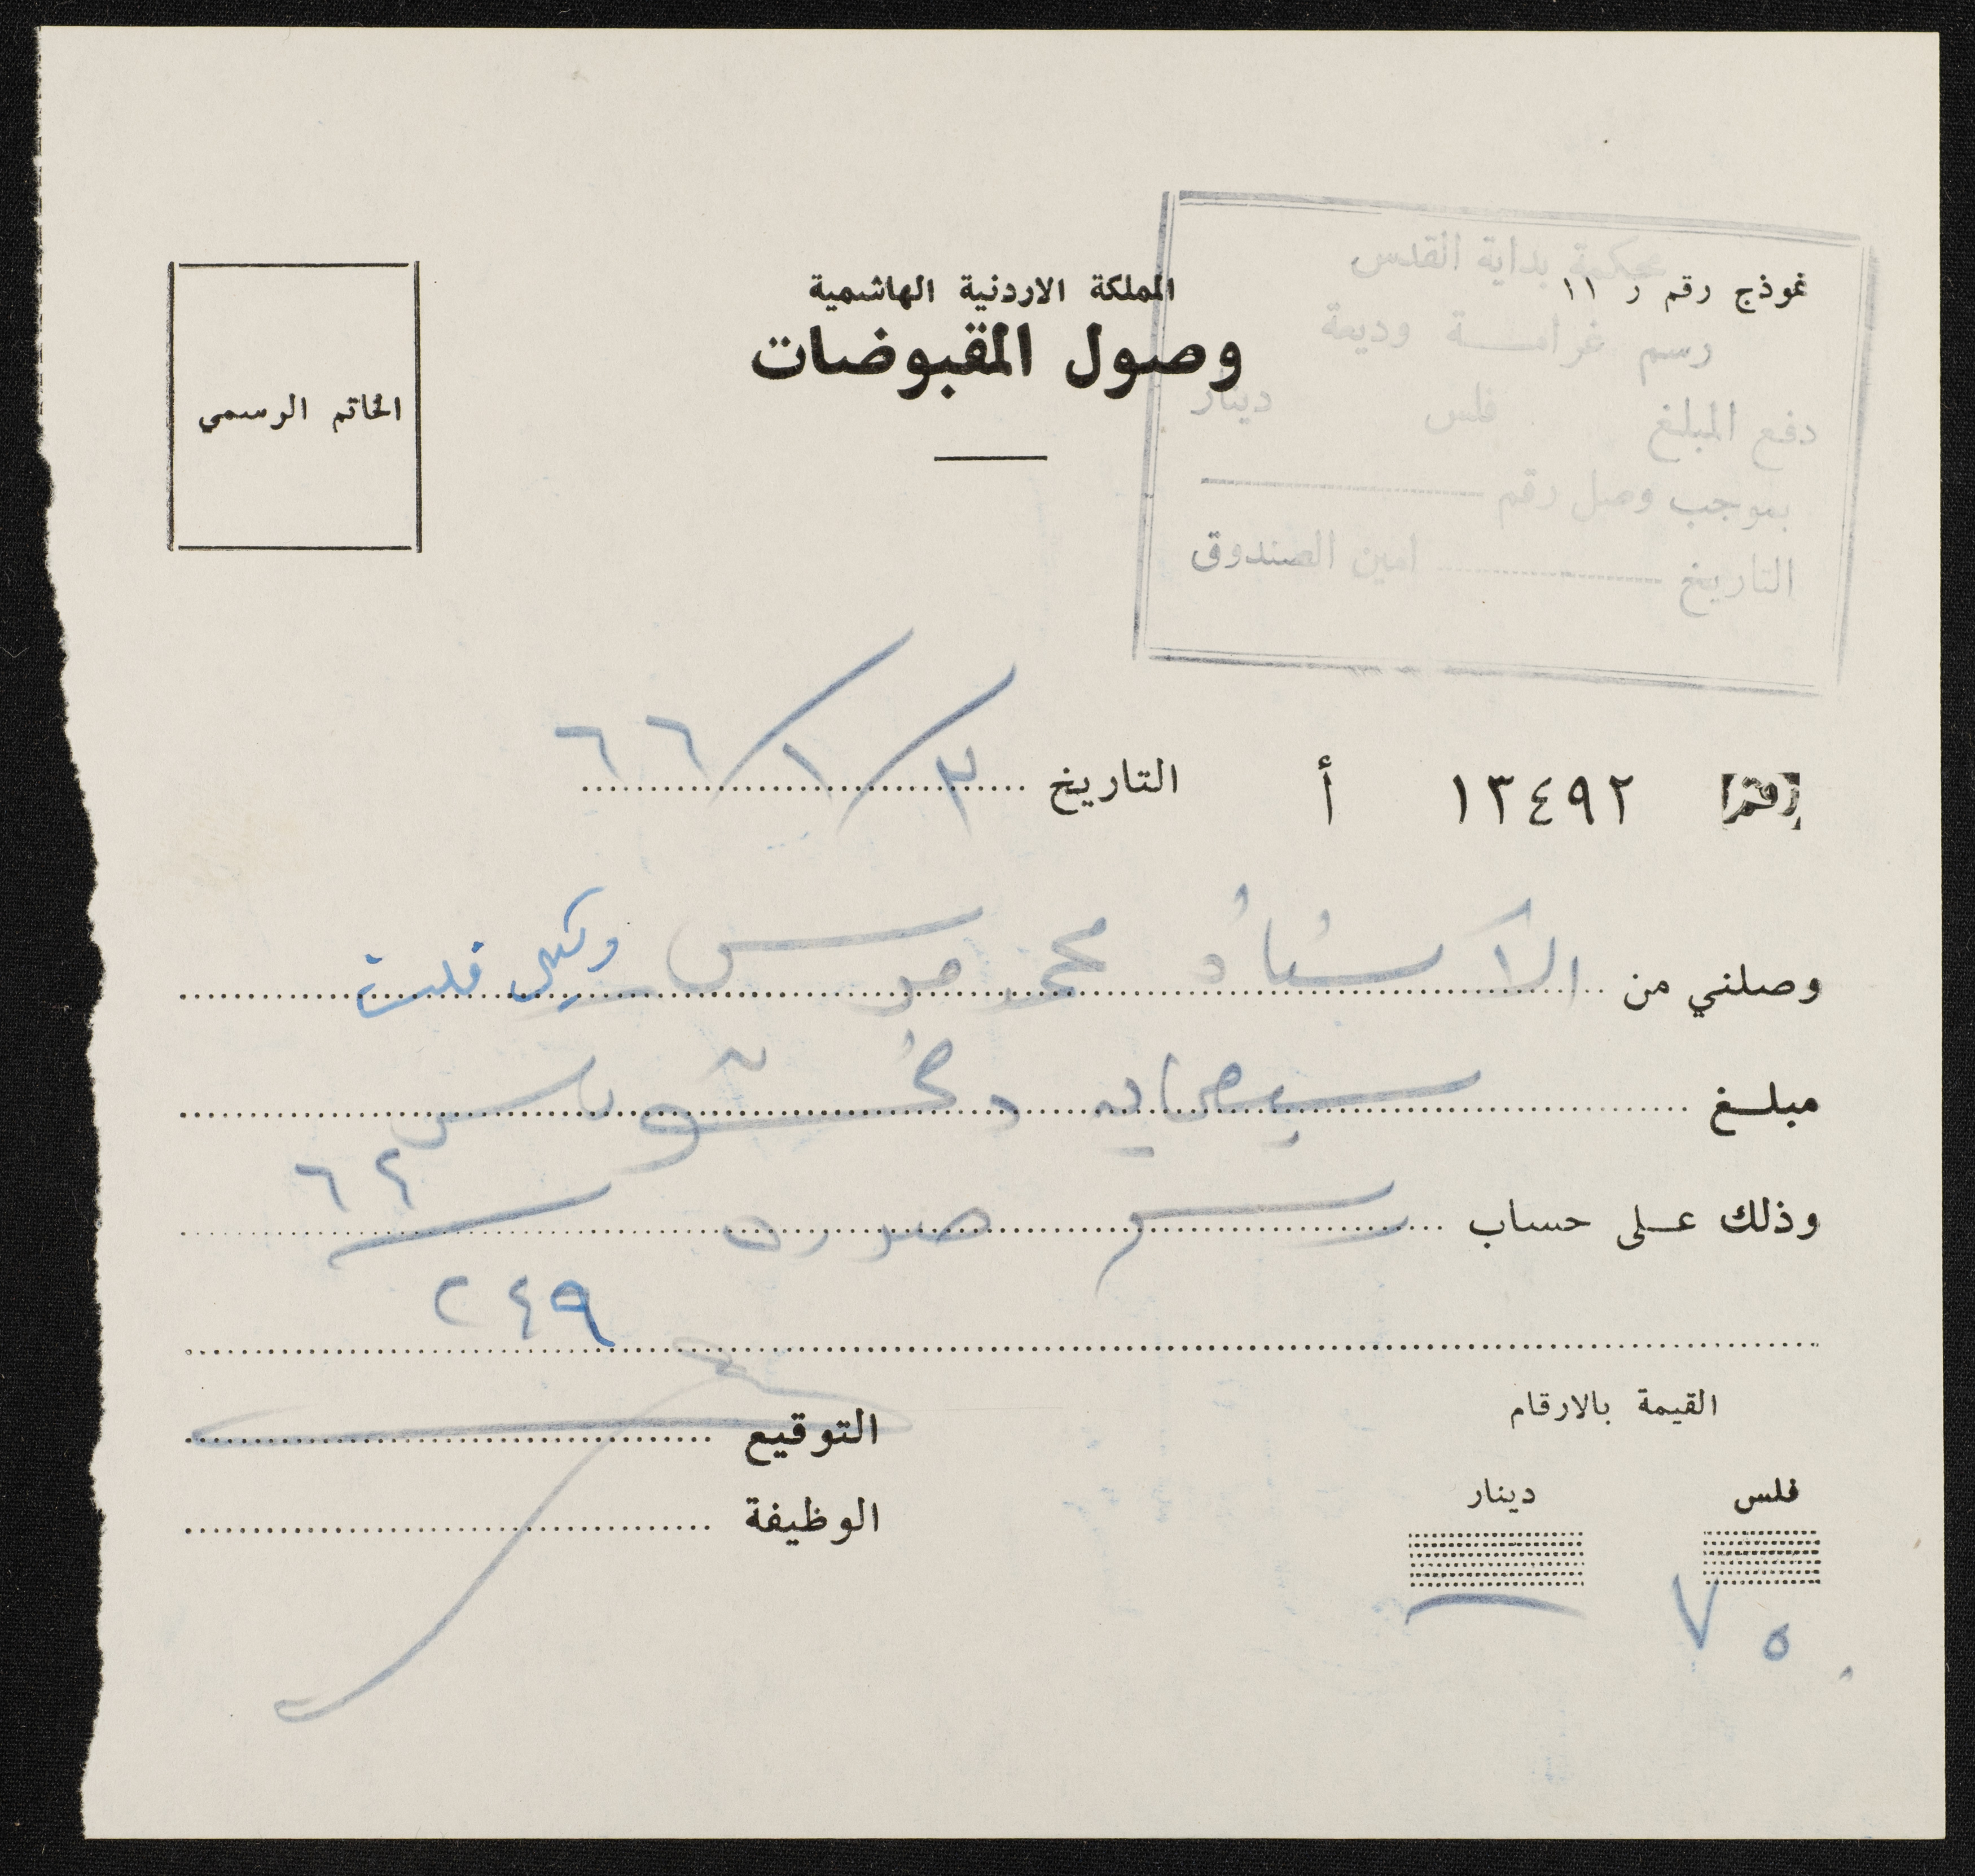 محكمة بداية القدس
نموذج رقم ر ١١
رسم غرامة وديعة
دفع المبلغ فلس دينار
بموجب وصل رقم
التاريخ امين الصندوق
المملكة الاردنية الهاشمية
وصول المقبوضات
الخاتم الرسمي
رقم ١٣٤٩٢ أ التاريخ ٣/١/٦٦
وصلني من الاستاذ محمد وكيل فلس
مبلغ
وذلك على حساب رسم ٦٢
٢٤٩
القيمة بالارقام
التوقيع
فلس دينار
الوظيفة
٧٥